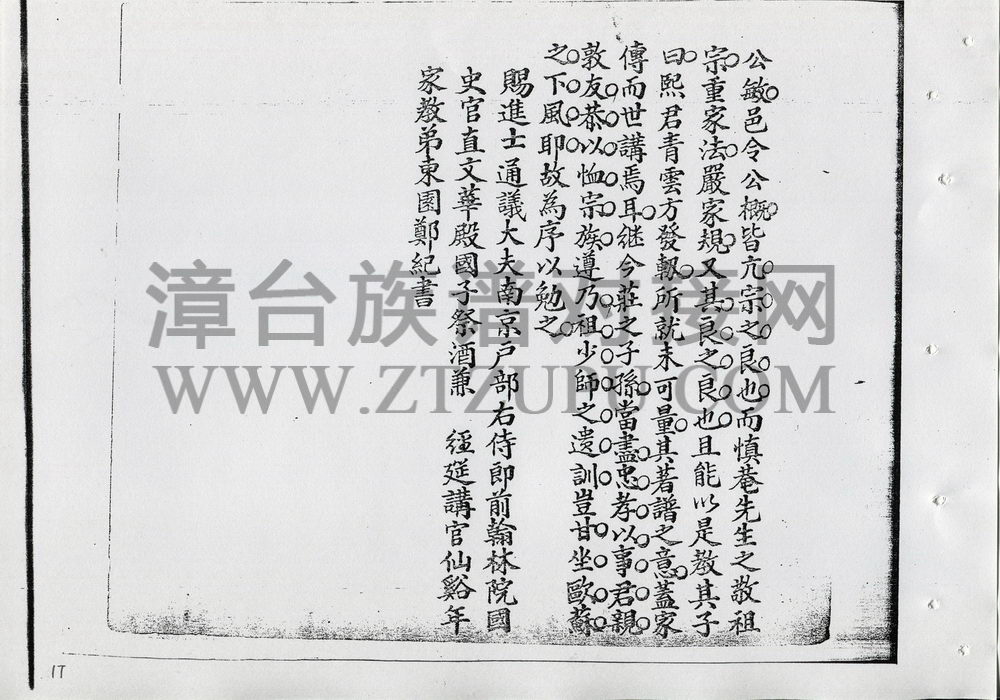 公敏邑令公概皆亢宗之良也而慎菴先生之敬祖
宗重家法嚴家規又其良之良也且能以是教其子
曰熙君青雲方發軔所就未可量其著譜之意蓋家
傳而世講焉耳继今莊之子孫當盡忠孝以事君親
敦友恭以恤宗族遵乃祖少師之遺訓豈甘坐歐蘇
之下風耶故為序以勉之
賜進士通議大夫南京戸部右侍郎前翰林院國
史官直文華殿國子祭酒兼 經筵講官仙谿年
家教弟東園鄭紀書
漳台族谱对接网
WWW.ZTZUPU.COM
17